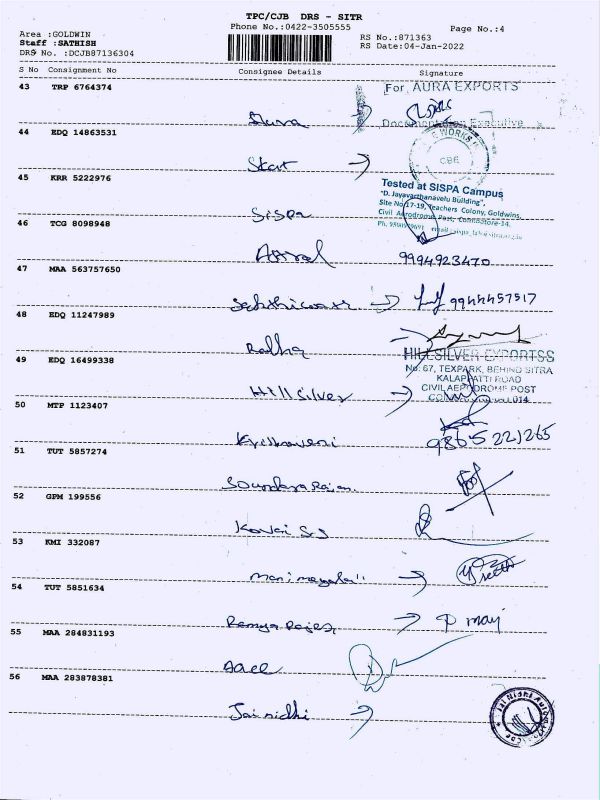 TPC/CJB DRS - SITR
Phone No.:0422-3505555
Page No.:4
Area :GOLDWIN
RS No.:871363
Staff :SATHISH
RS Date:04-Jan-2022
DRS No. :DCJB87136304
S No Consignment No Consignee Details Signature
43 TRP 6764374
For AURA EXPORTS
Aura
Documentation Executive
44 EDQ 14863531
WORKS
CBE
Start
45 KRR 5222976
Tested at SISPA Campus
"D. Jayavarthanavelu Building",
Site No 17-19, Teachers Colony, Goldwins,
Sispa
Civil Aerodrome Post, Coimbatore-14.
46 TCG 8098948
Astral
9994923470
47 MAA 563757650
9944457517
48 EDQ 11247989
Radha
HILLSILVER EXPORTSS
49 EDQ 16499338
No: 67, TEXPARK, BEHIND SITRA
KALAPPATTI ROAD
Hill silver
CIVIL AERODROME POST
50 MTP 1123407
Krithaveni
9865221265
51 TUT 5857274
Soundara Rajan
52 GPM 199556
Kovai SS
53 KMI 332087
Manimegalai
54 TUT 5851634
Ramya Rajes
55 MAA 284831193
56 MAA 283878381
Jai nidhi